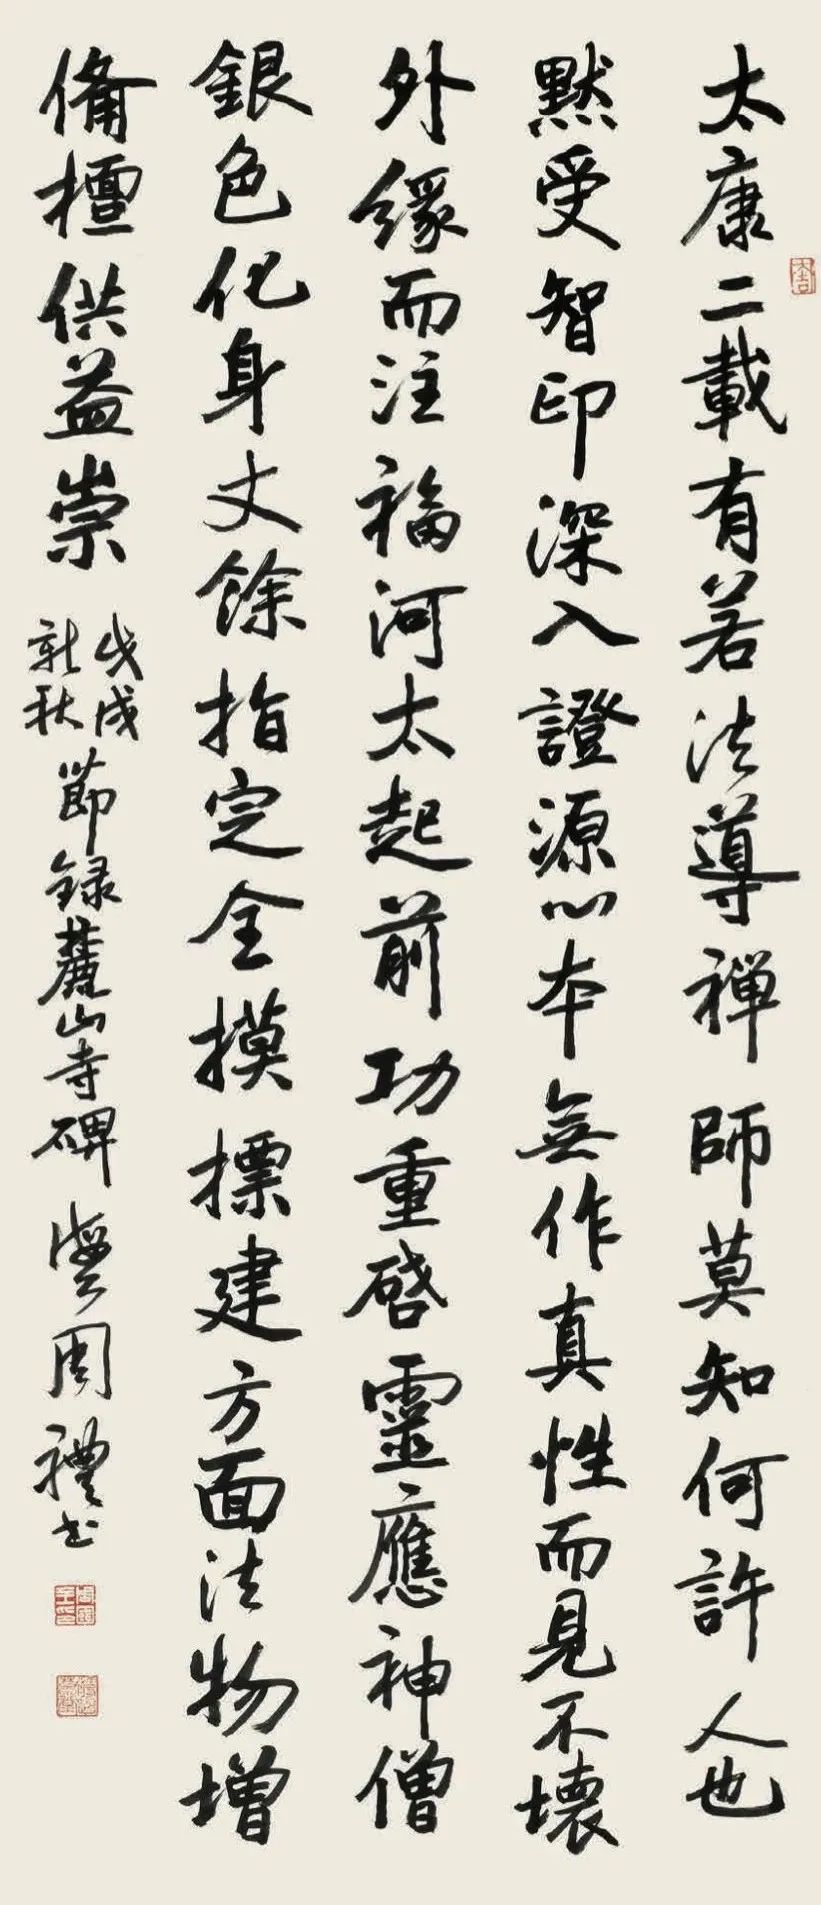 太康二載有若法導禪師莫知何許人也
默受智印深入證源心本無作真性而見不壞
外緣而注福河太起前功重啓靈應神僧
銀色化身丈餘指定全摸標建方面法物增
備檀供益崇
戊戌
新秋
節録麓山寺碑 周禮書